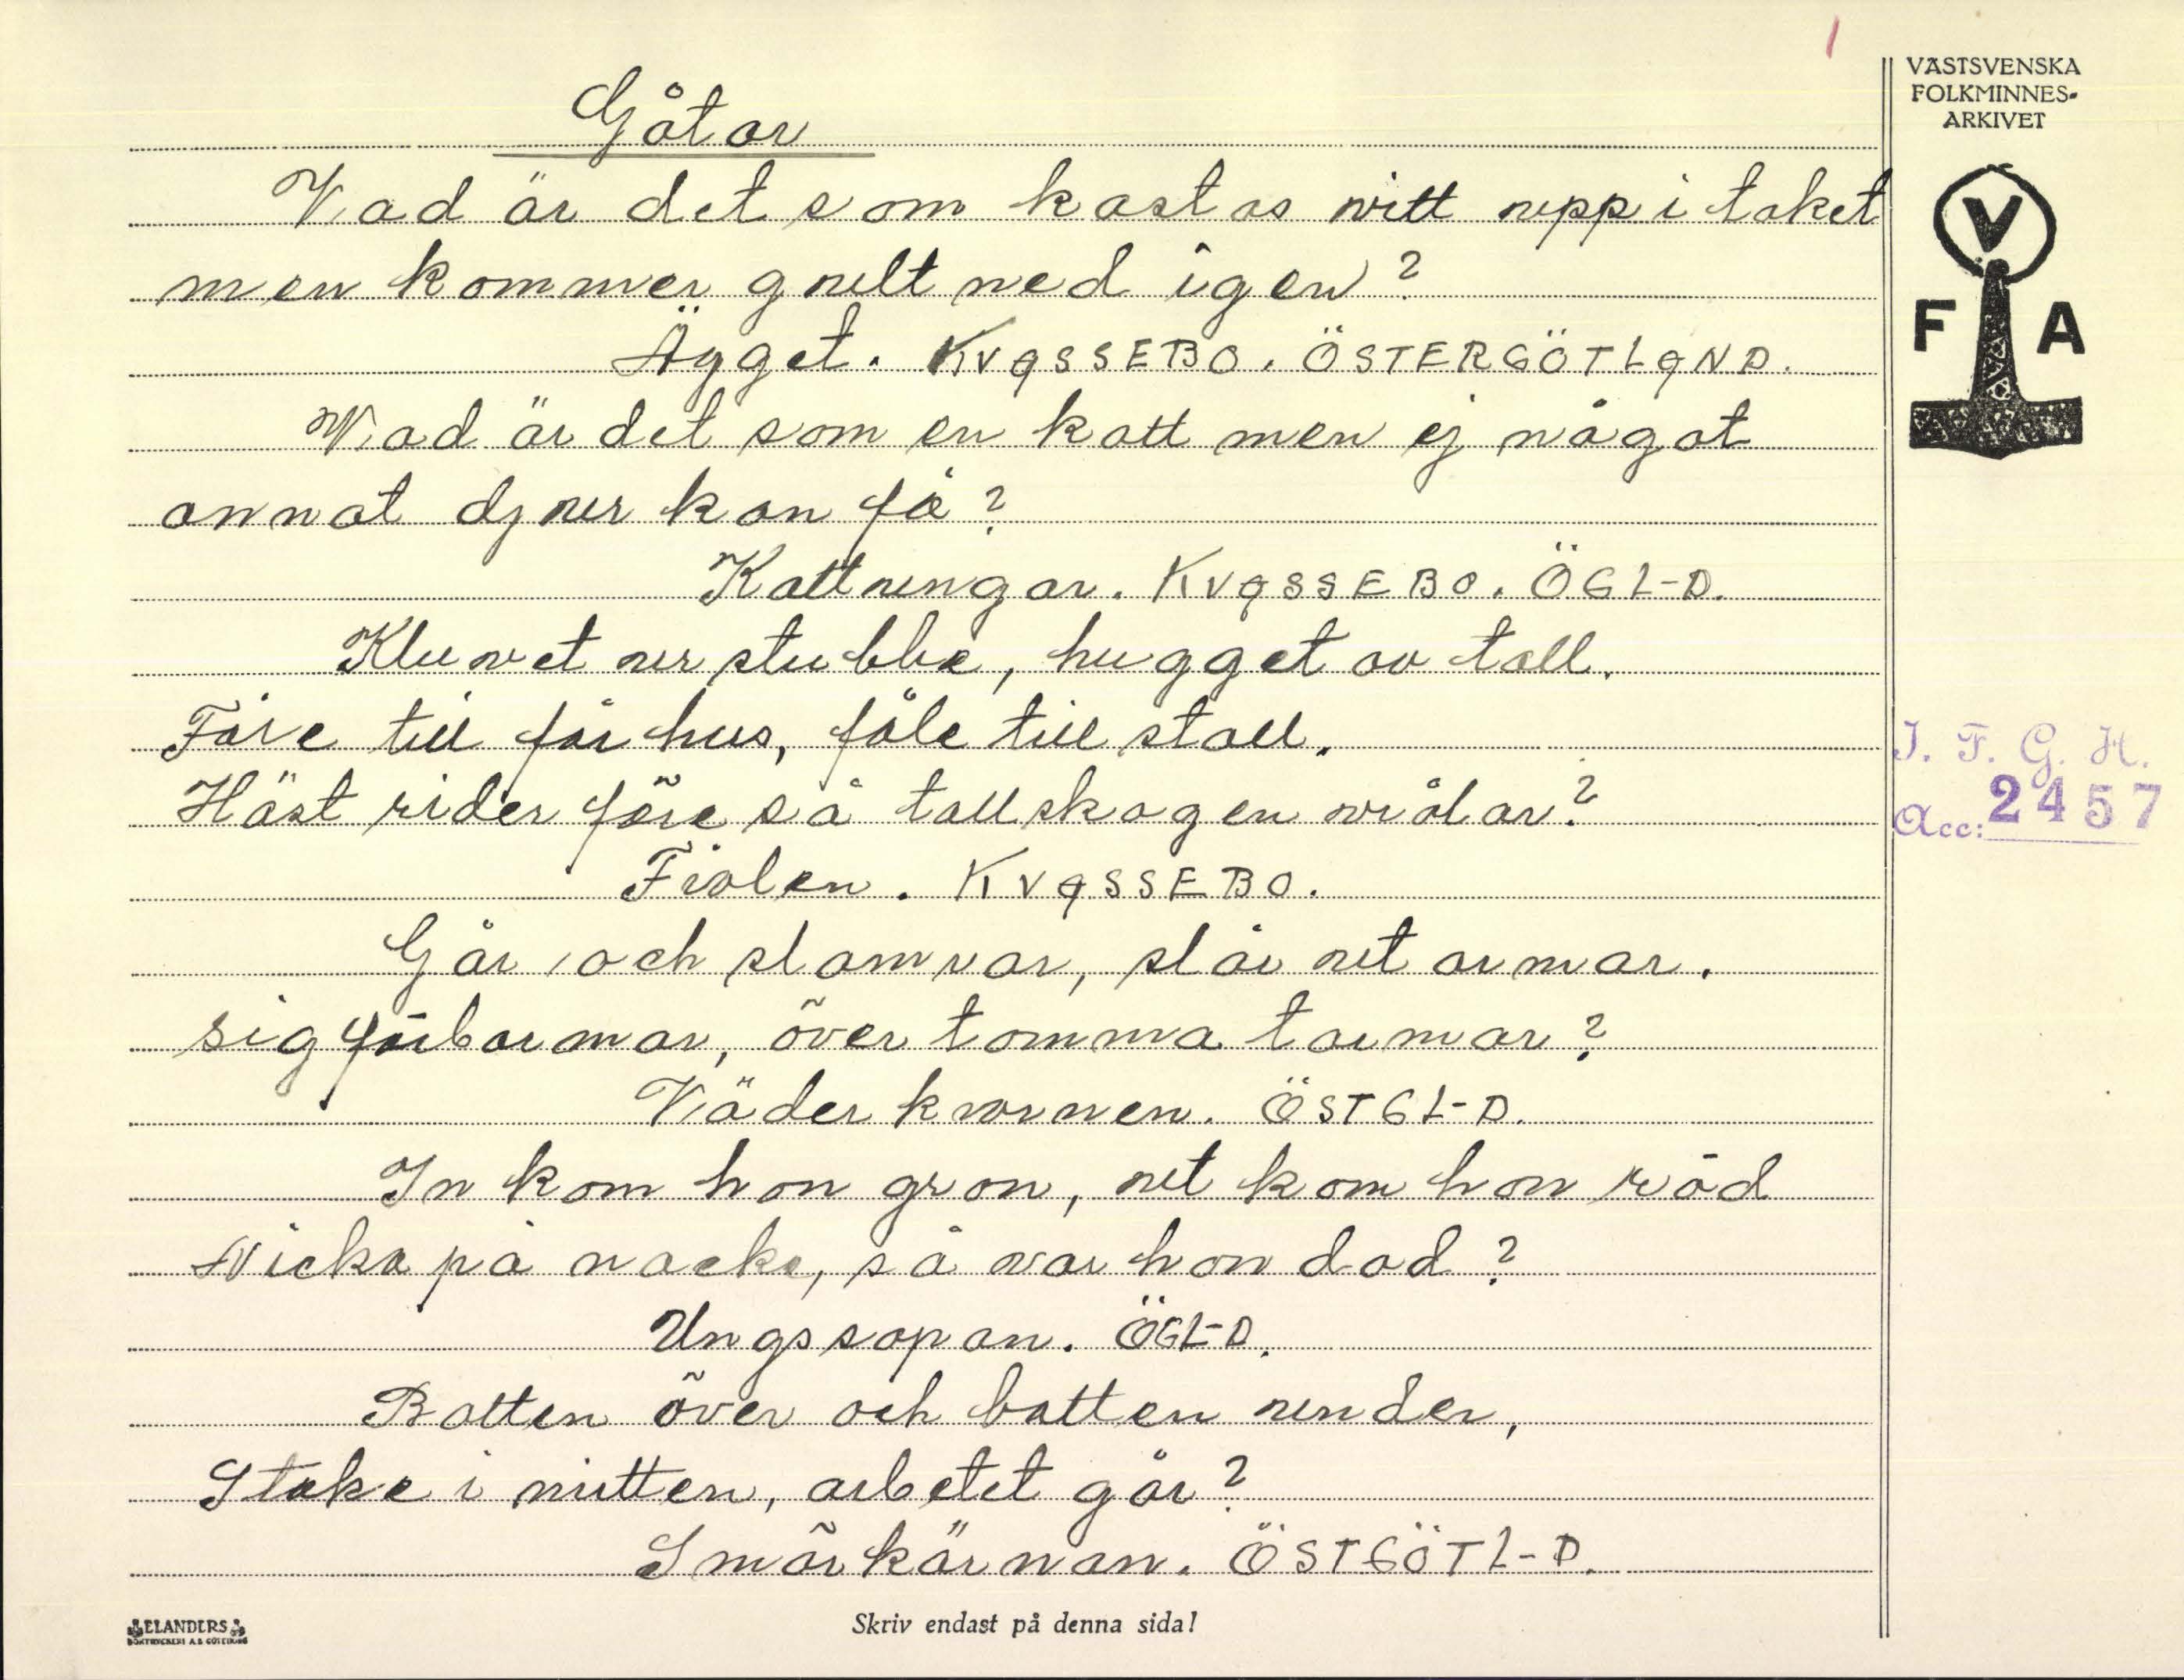 1
VÄSTSVENSKA
FOLKMINNES-
ARKIVET
V
F A
Gåtor
Vad är det som kastas vitt upp i taket
men kommer gult ned igen?
Ägget. KVASSEBO. ÖSTERGÖTLAND.
Vad är det som en katt men ej något
annat djur kan få?
Kattungar. KVASSEBO. ÖGL-D.
Kluvet ur stubbe, hugget av tall.
Fåre till fårhus, föle till stall.
Häst rider före så tallskogen vrålar?
Fiolen. KVASSEBO.
Går och slamrar, slår ut armar.
sig förbarmar, över tomma tarmar?
Väderkvarnen. ÖSTGL-D.
In kom hon grön, ut kom hon röd
Nicka på nacke, så var hon död?
Ungssopan. ÖGL-D.
Botten över och botten under,
Stake i mitten, arbetet går?
Smörkärnan. ÖSTGÖTL-D.
I. F. G. H.
Acc: 2457
ELANDERS
BOKTRYCKERI A.B. GÖTEBORG
Skriv endast på denna sida!